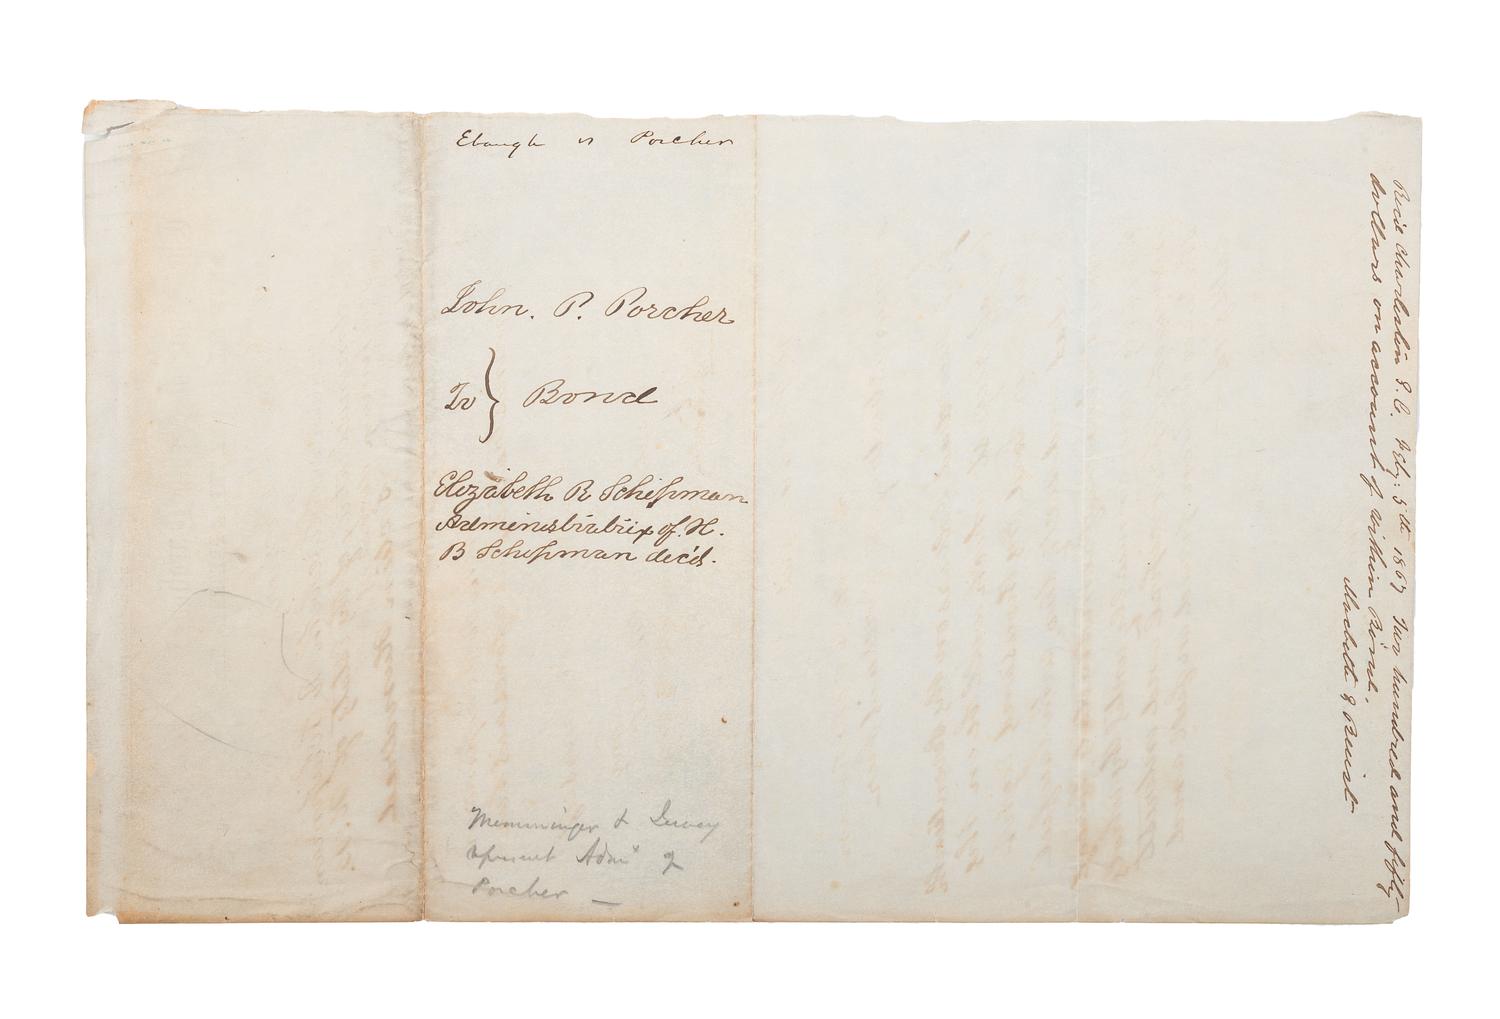 Ebaugh vs Porcher
John. P. Porcher
To } Bond
Elizabeth R Schipman
Administratrix of. H.
B Schipman dec'd.
Memminger & Jervey
represent Admx of
Porcher —
Rec'd Charleston S. C. Feby: 5th 1867 Two hundred and fifty
dollars on account of within Bond.
Macbeth & Buist